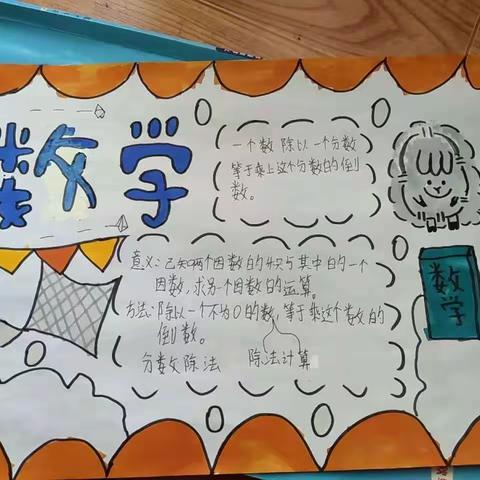 数学
一个数除以一个分数
等于乘上这个分数的倒
数。
意义:已知两个因数的积与其中的一个
因数,求另一个因数的运算。
方法:除以一个不为0的数,等于乘这个数的
倒数。
分数除法
除法计算
数学